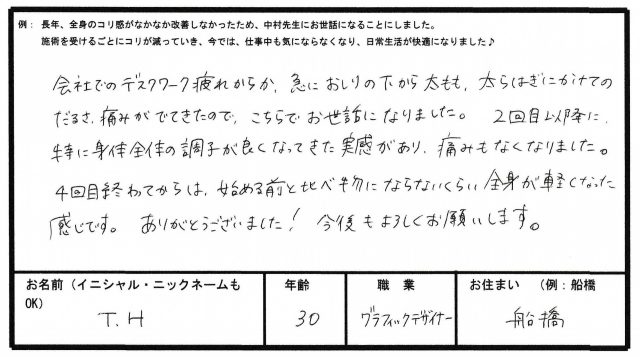 例： 長年、全身のコリ感がなかなか改善しなかったため、中村先生にお世話になることにしました。
施術を受けるごとにコリが減っていき、今では、仕事中も気にならなくなり、日常生活が快適になりました♪
会社でのデスクワーク疲れからか、急におしりの下から太もも、太らはぎにかけての
だるさ、痛みがでてきたので、こちらでお世話になりました。 2回目以降に、
特に身体全体の調子が良くなってきた実感があり、痛みもなくなりました。
4回目終わってからは、始める前と比べ物にならないくらい全身が軽くなった
感じです。 ありがとうございました！ 今後もよろしくお願いします。
お名前（イニシャル・ニックネームも 年齢 職 業 お住まい （例：船橋
OK)
T.H 30 グラフィックデザイナー 船橋